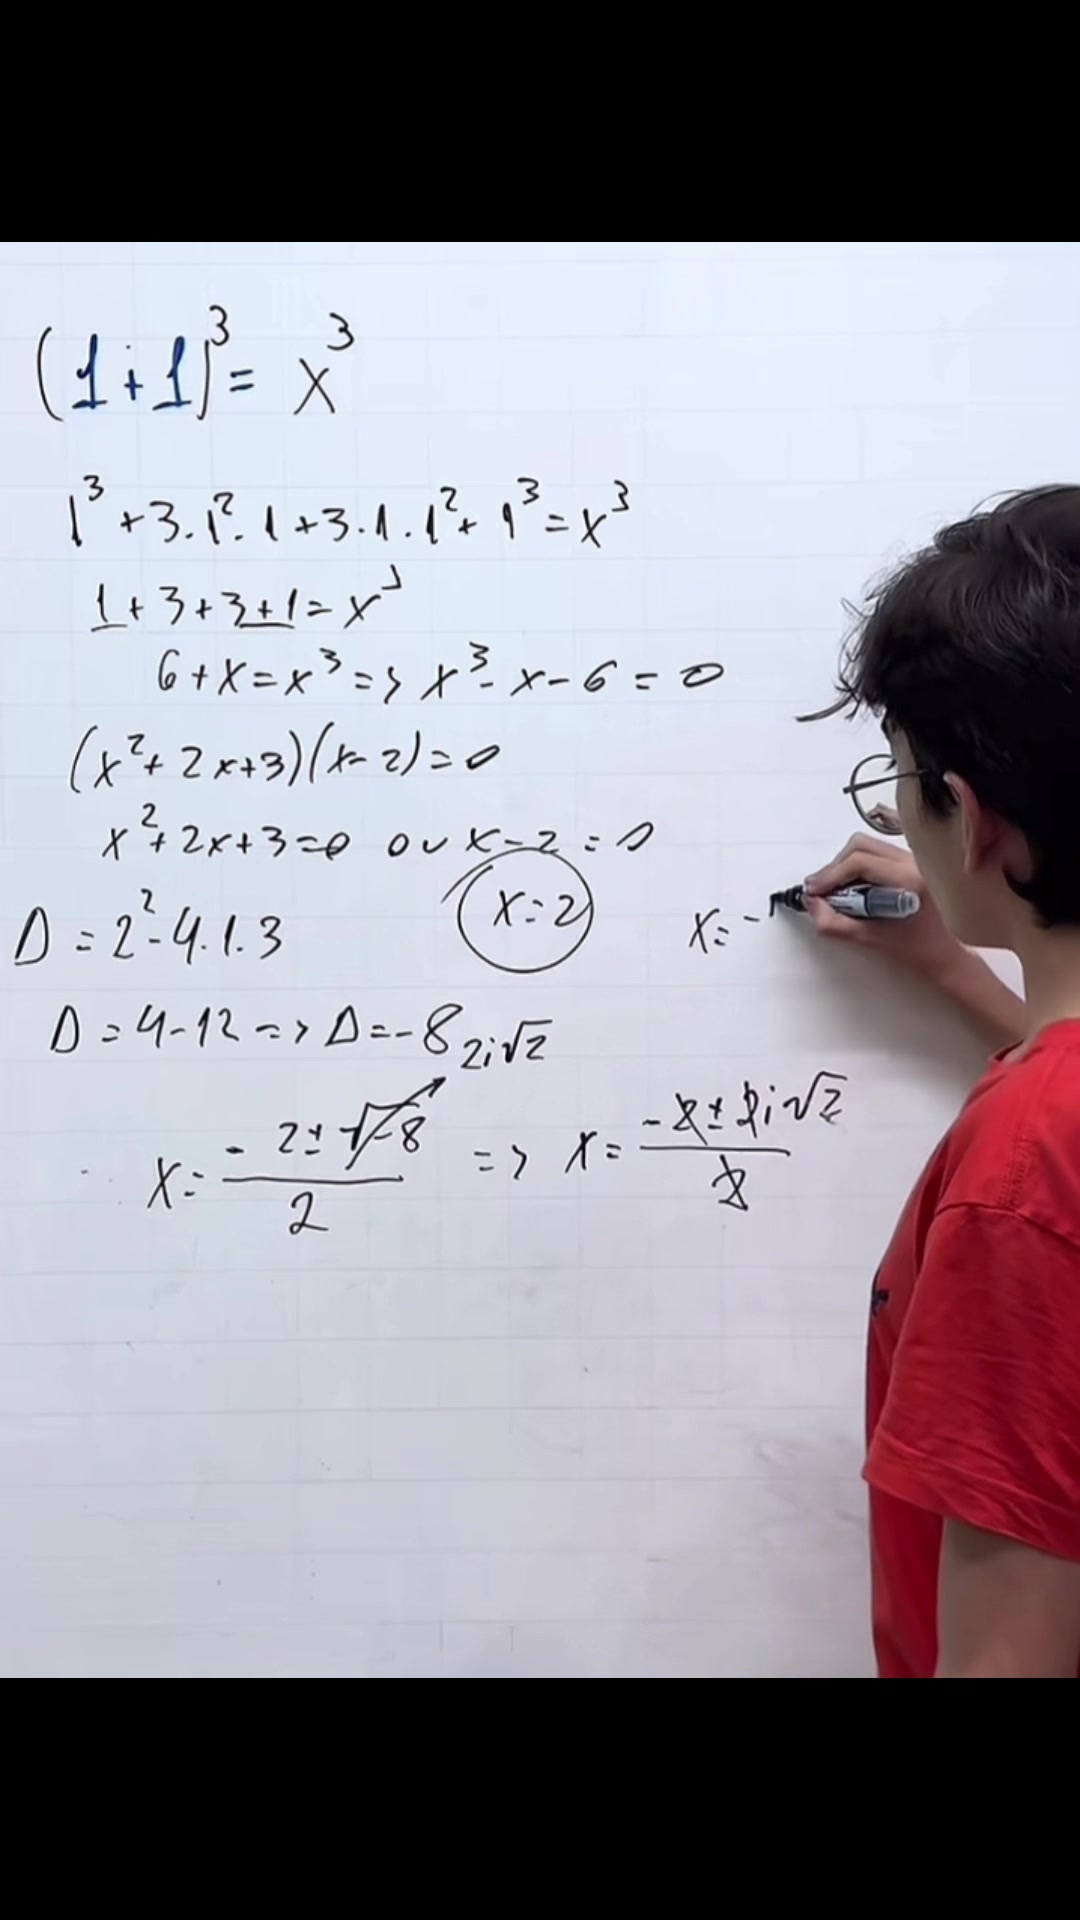 (1+1)³ = x³
1³ + 3.1².1 + 3.1.1² + 1³ = x³
1 + 3 + 3 + 1 = x³
6 + x = x³ => x³ - x - 6 = 0
(x² + 2x + 3)(x - 2) = 0
x² + 2x + 3 = 0 ou x - 2 = 0
Δ = 2² - 4.1.3
x = 2
x = -1
Δ = 4 - 12 => Δ = -8
2i√2
x = (-2 ± √-8)/2 => x = (-2 ± 2i√2)/2